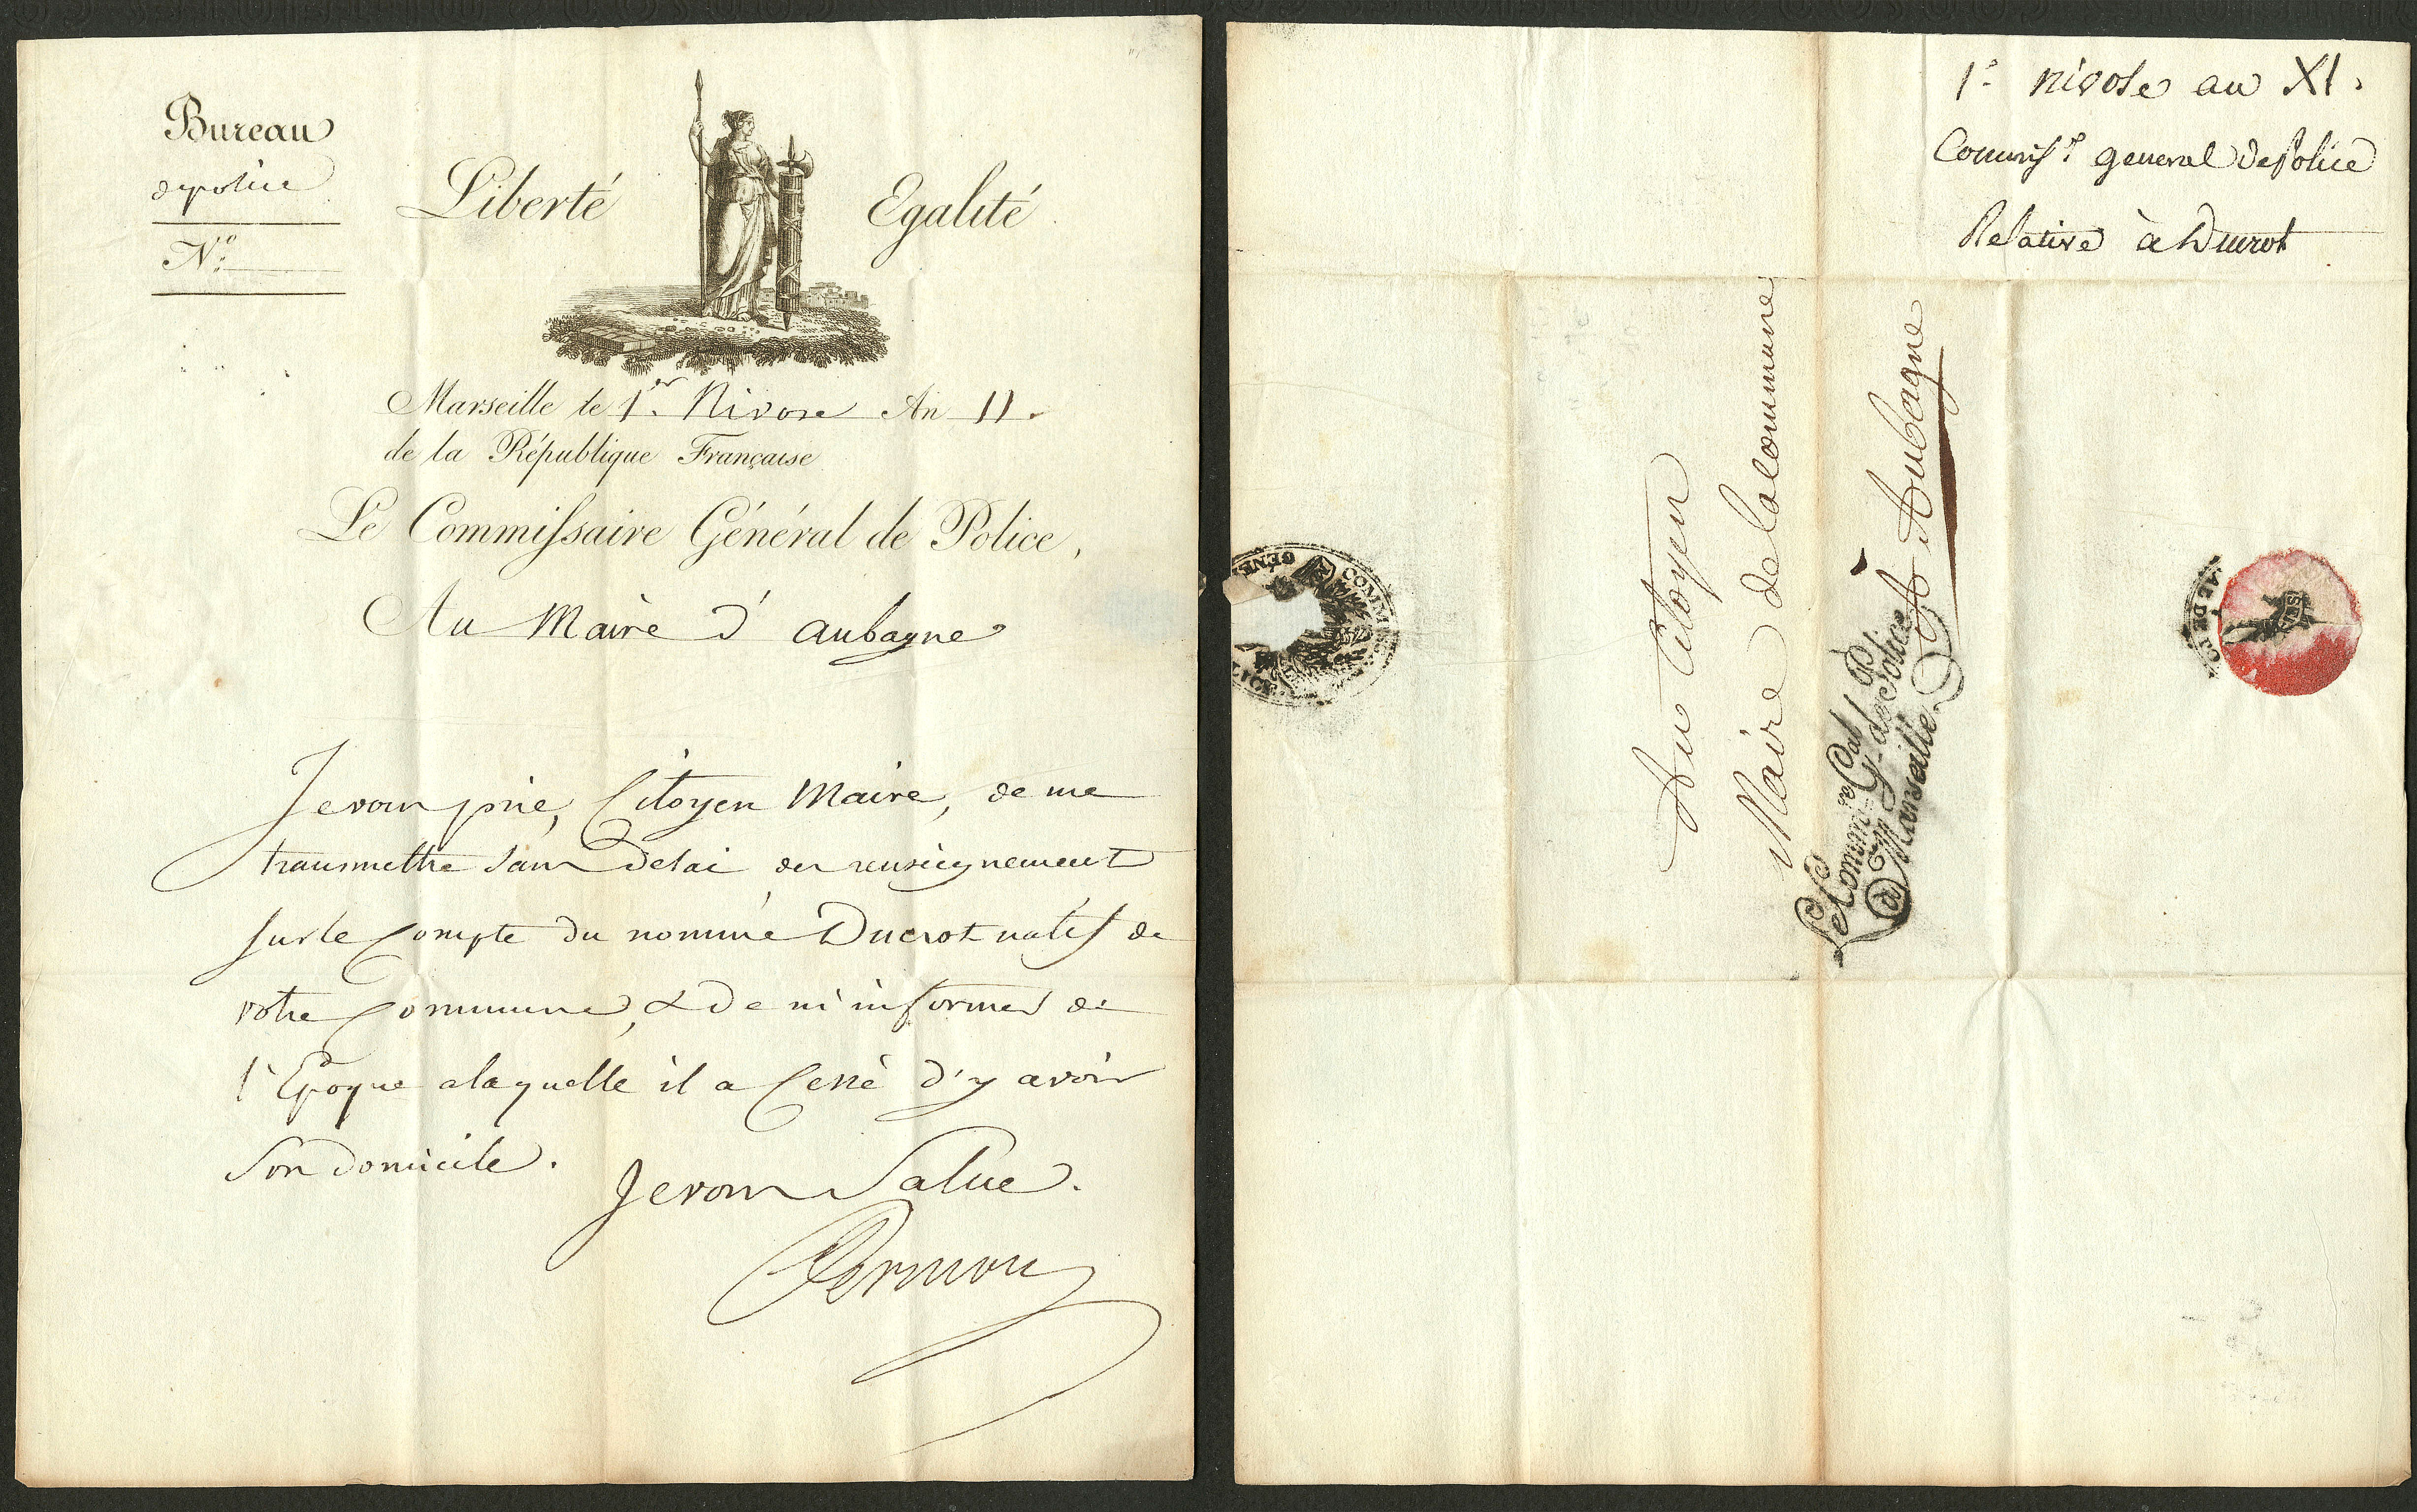 Bureau
de police
N.º
Liberté
Egalité
Marseille le 1.er Nivose An 11.
de la République Française
Le Commissaire Général de Police,
Au Maire d'aubagne
Je vous prie, Citoyen Maire, de me
transmettre sans delai des renseignement
sur le Compte du nommé Ducrot natif de
votre Commune, & de m'informer de
l'Epoque a laquelle il a Cessé d'y avoir
Son domicile.
Je vous Salue.
Permon
1.er nivose an XI.
Commiss.re general de police
Relative à Ducrot
Au Citoyen
Maire de la Commune
A Aubagne
Le Comm.re G.al de Police
à Marseille
COMM
GÉNÉ
LICE
AL DE PO